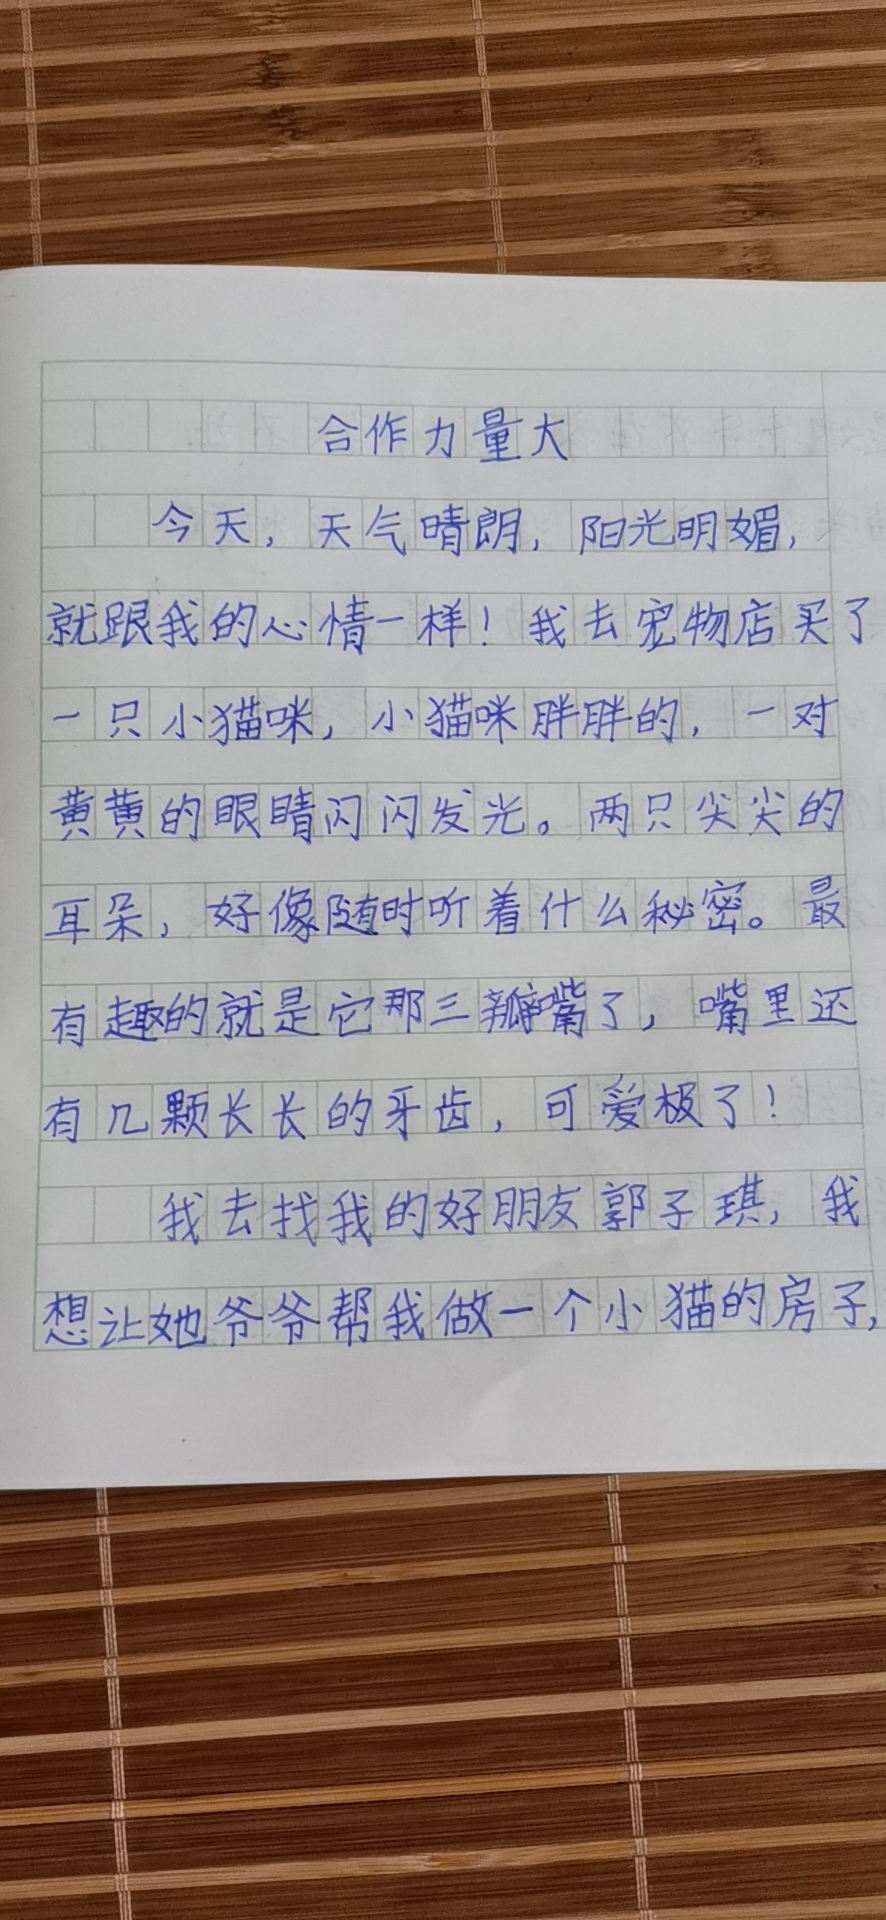 合作力量大
今天，天气晴朗，阳光明媚，
就跟我的心情一样！我去宠物店买了
一只小猫咪，小猫咪胖胖的，一对
黄黄的眼睛闪闪发光。两只尖尖的
耳朵，好像随时听着什么秘密。最
有趣的就是它那三瓣嘴了，嘴里还
有几颗长长的牙齿，可爱极了！
我去找我的好朋友郭子琪，我
想让她爷爷帮我做一个小猫的房子，